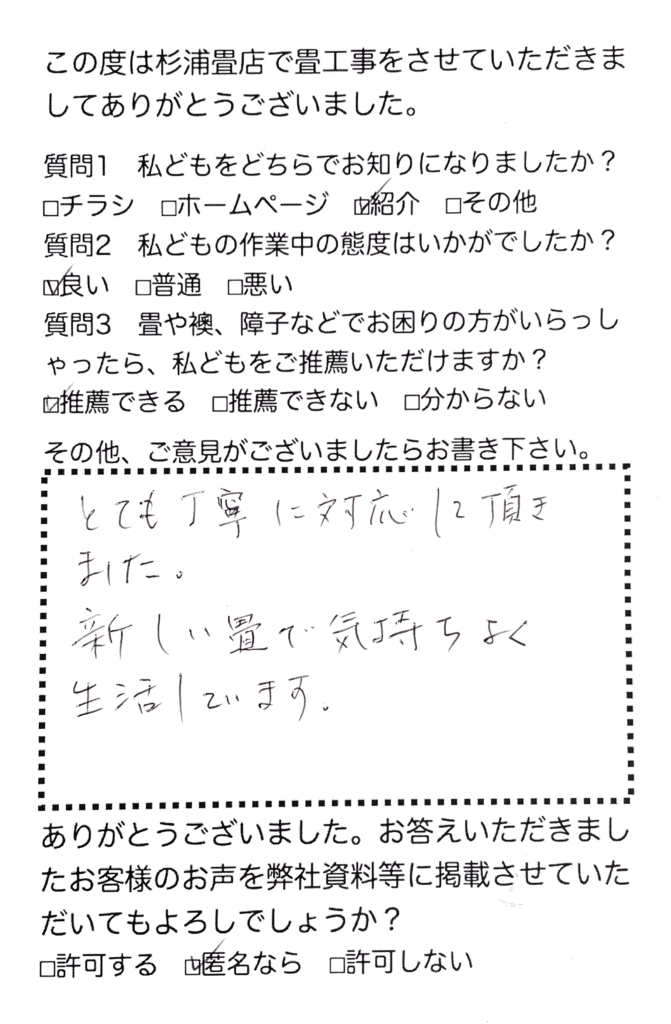 この度は杉浦畳店で畳工事をさせていただきま
してありがとうございました。
質問1 私どもをどちらでお知りになりましたか？
□チラシ □ホームページ ☑紹介 □その他
質問2 私どもの作業中の態度はいかがでしたか？
☑良い □普通 □悪い
質問3 畳や襖、障子などでお困りの方がいらっし
ゃったら、私どもをご推薦いただけますか？
☑推薦できる □推薦できない □分からない
その他、ご意見がございましたらお書き下さい。
とても丁寧に対応して頂き
ました。
新しい畳で気持ちよく
生活しています。
ありがとうございました。お答えいただきまし
たお客様のお声を弊社資料等に掲載させていた
だいてもよろしでしょうか？
□許可する ☑匿名なら □許可しない